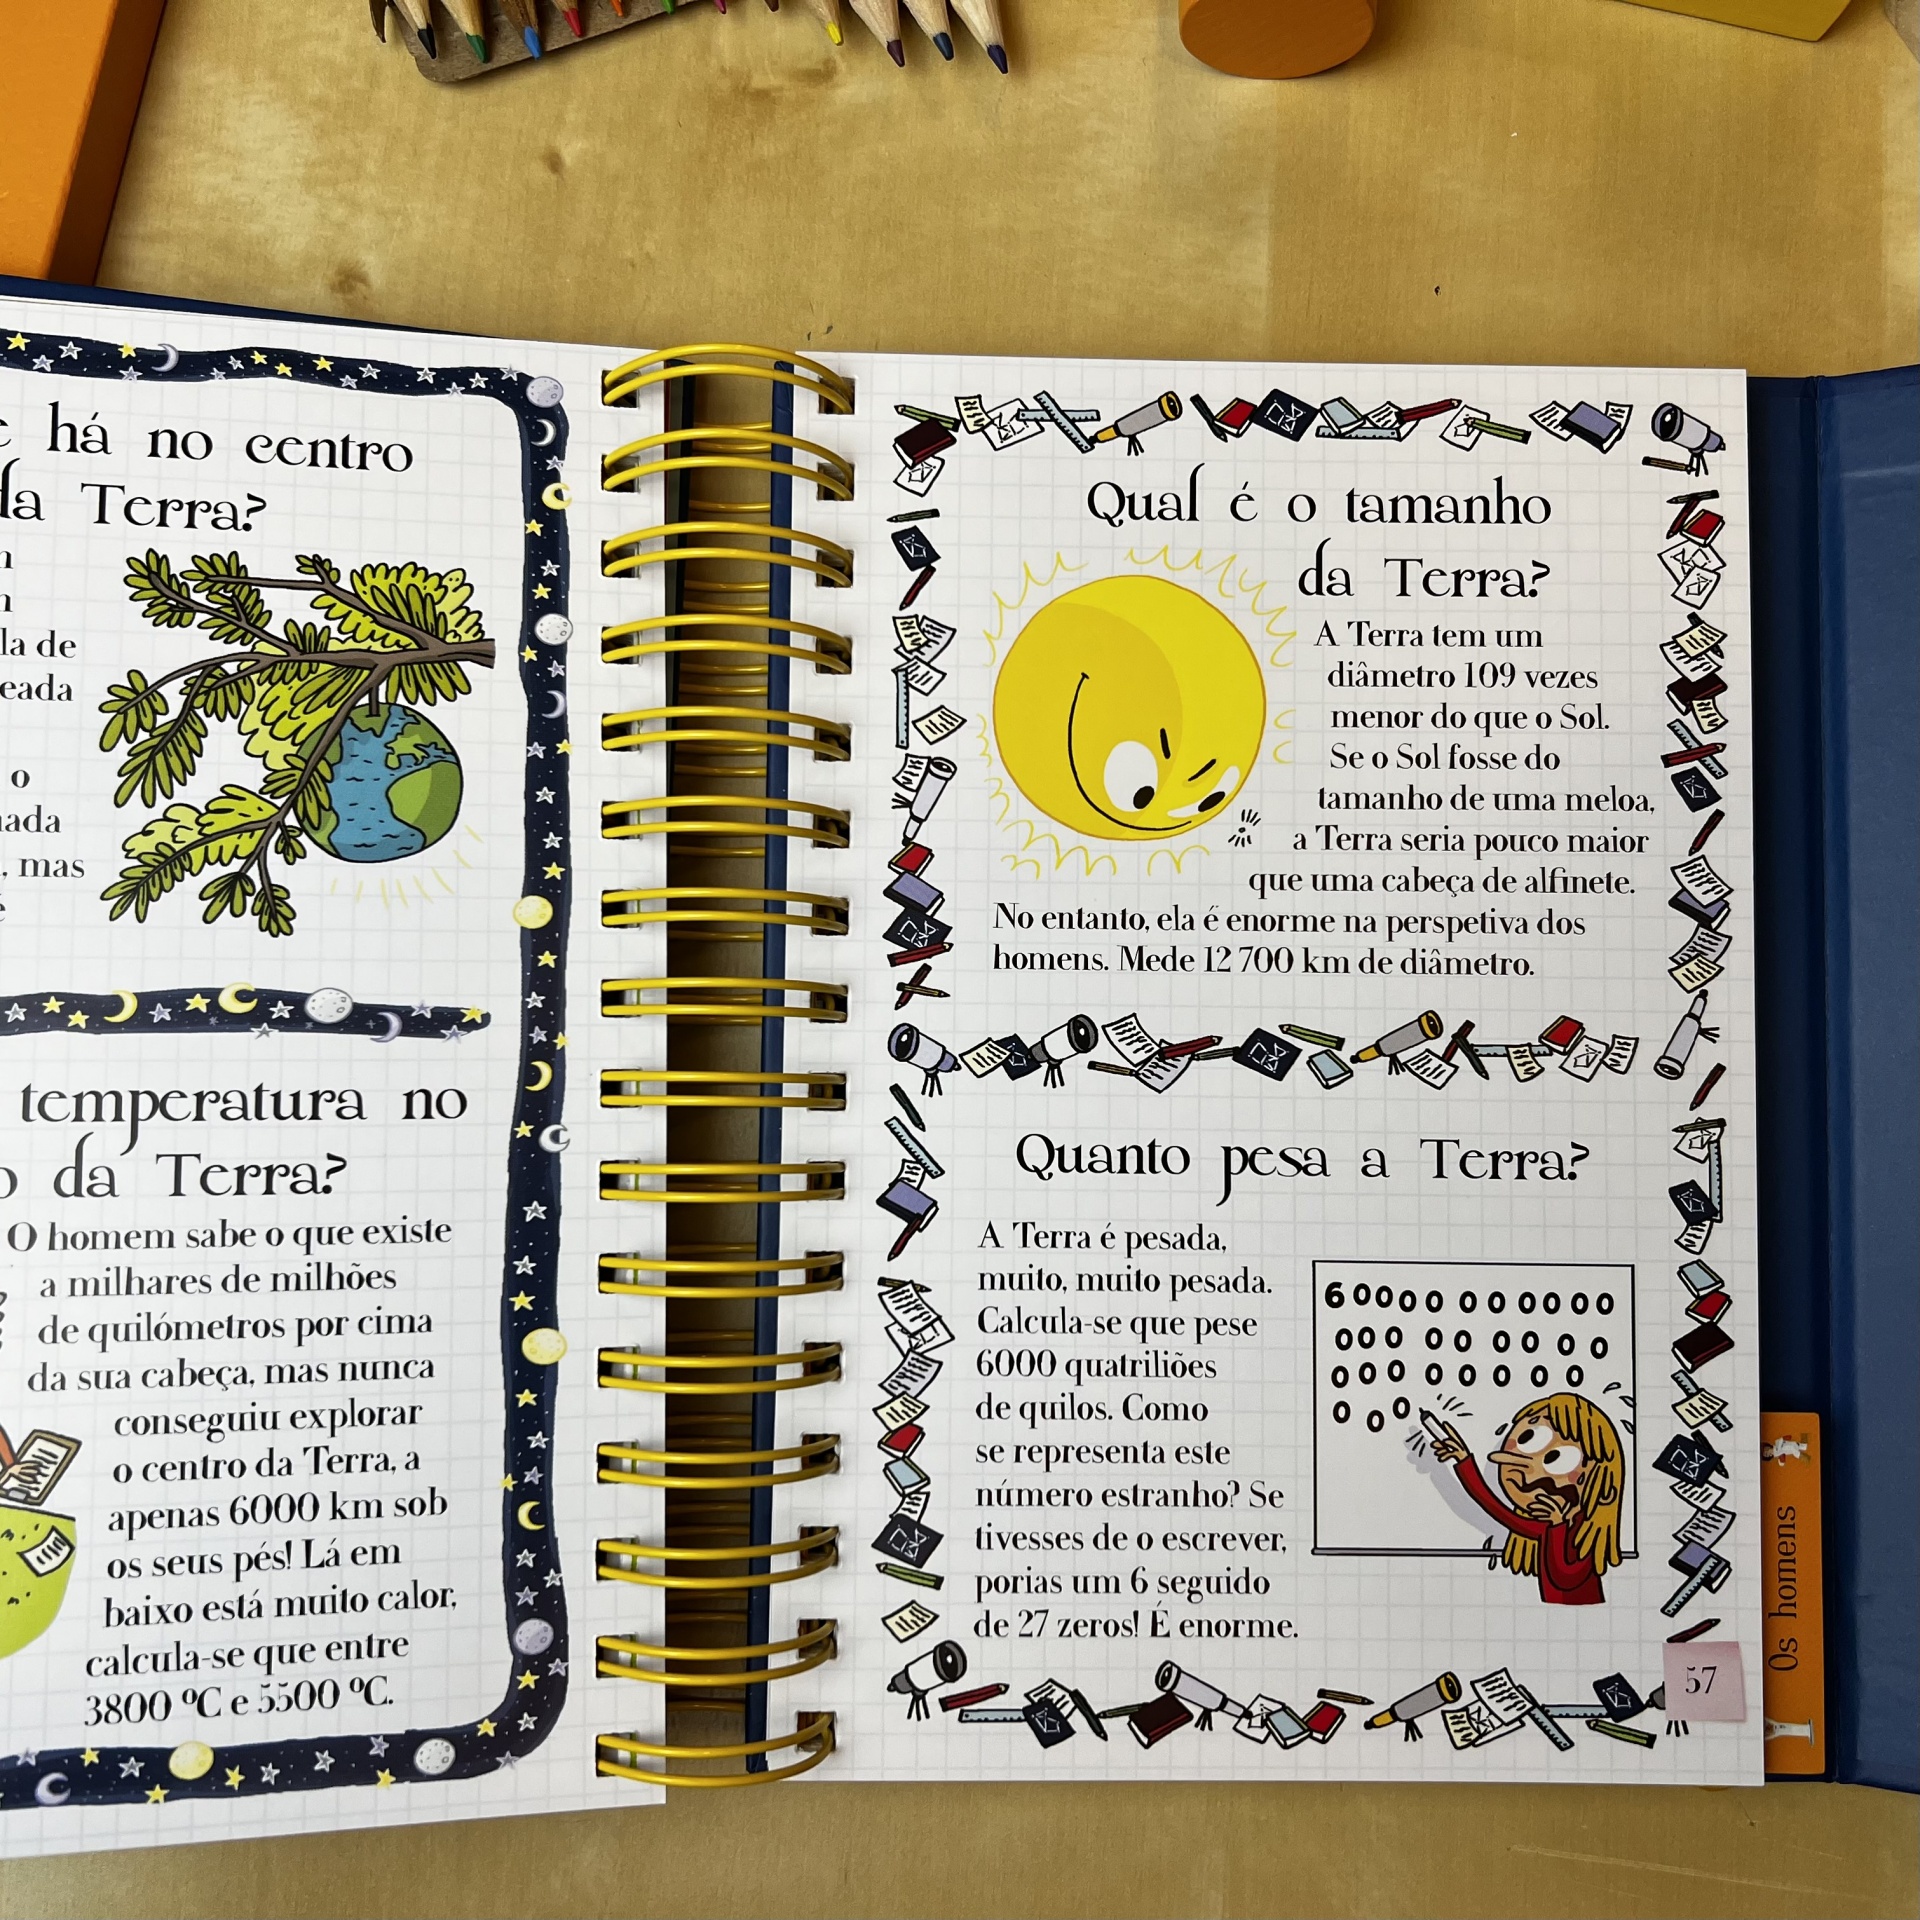 há no centro
da Terra?
la de
eada
o
mas
temperatura no
da Terra?
O homem sabe o que existe
a milhares de milhões
de quilómetros por cima
da sua cabeça, mas nunca
conseguiu explorar
o centro da Terra, a
apenas 6000 km sob
os seus pés! Lá em
baixo está muito calor,
calcula-se que entre
3800 ºC e 5500 ºC.
Qual é o tamanho
da Terra?
A Terra tem um
diâmetro 109 vezes
menor do que o Sol.
Se o Sol fosse do
tamanho de uma meloa,
a Terra seria pouco maior
que uma cabeça de alfinete.
No entanto, ela é enorme na perspetiva dos
homens. Mede 12 700 km de diâmetro.
Quanto pesa a Terra?
A Terra é pesada,
muito, muito pesada.
Calcula-se que pese
6000 quatriliões
de quilos. Como
se representa este
número estranho? Se
tivesses de o escrever,
porias um 6 seguido
de 27 zeros! É enorme.
60000 000000
000 00 00 00
000 00 00 0
0 0 0
57
Os homens